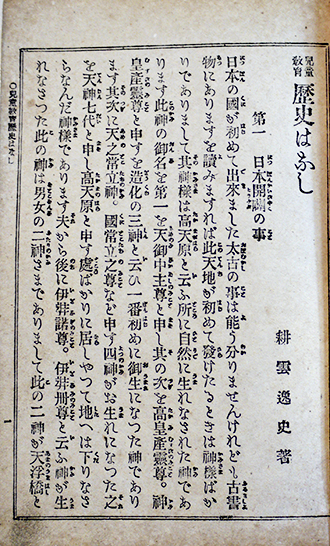 兒童教育 歷史はなし
耕雲逸史著
第一 日本開闢の事
日本の國が初めて出來ました太古の事は能う分りませんけれども古書
物にありますを讀みますれば此天地が初めて發けたるときは神樣ばか
りでありまして其神樣は高天原と云ふ所に自然に生れなされた神であ
ります此神の御名を第一を天御中主尊と申し其の次を高皇產靈尊。神
皇產靈尊と申すを造化の三神と云ひ一番初めに御生になつた神であり
ます其次に天之常立神。國常立之尊など申す四神がお生れになつた之
を天神七代と申し高天原と申す處ばかりに居しやつて地へは下りなさ
らなんだ神樣であります夫から後に伊弉諾尊。伊弉冊尊と云ふ神が生
れなさつた此の神は男女の二神さまでありまして此の二神が天浮橋と
○兒童教育歷史はなし
一